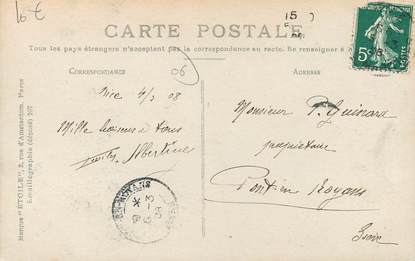 16 €
CARTE POSTALE
Tous les pays étrangers n'acceptent pas la correspondance au recto. Se renseigner à
CORRESPONDANCE
ADRESSE
06
Nice 4/3 08
Mille baisers à tous
Albertine
Monsieur P.
propriétaire
Pont en Royans
Isère
5c
Marque "ETOILE", 2, rue d'Amsterdam, Paris